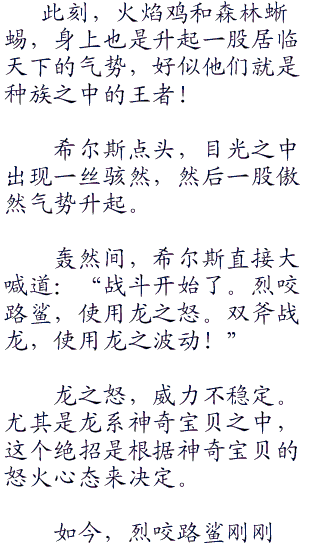 此刻，火焰鸡和森林蜥
蜴，身上也是升起一股居临
天下的气势，好似他们就是
种族之中的王者！
希尔斯点头，目光之中
出现一丝骇然，然后一股傲
然气势升起。
轰然间，希尔斯直接大
喊道：“战斗开始了。烈咬
路鲨，使用龙之怒。双斧战
龙，使用龙之波动！”
龙之怒，威力不稳定。
尤其是龙系神奇宝贝之中，
这个绝招是根据神奇宝贝的
怒火心态来决定。
如今，烈咬路鲨刚刚